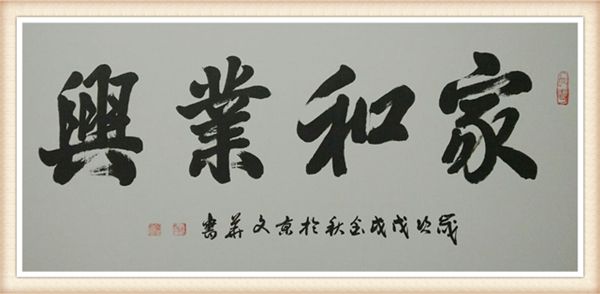 家和業興
歲次戊戌金秋於京文華書